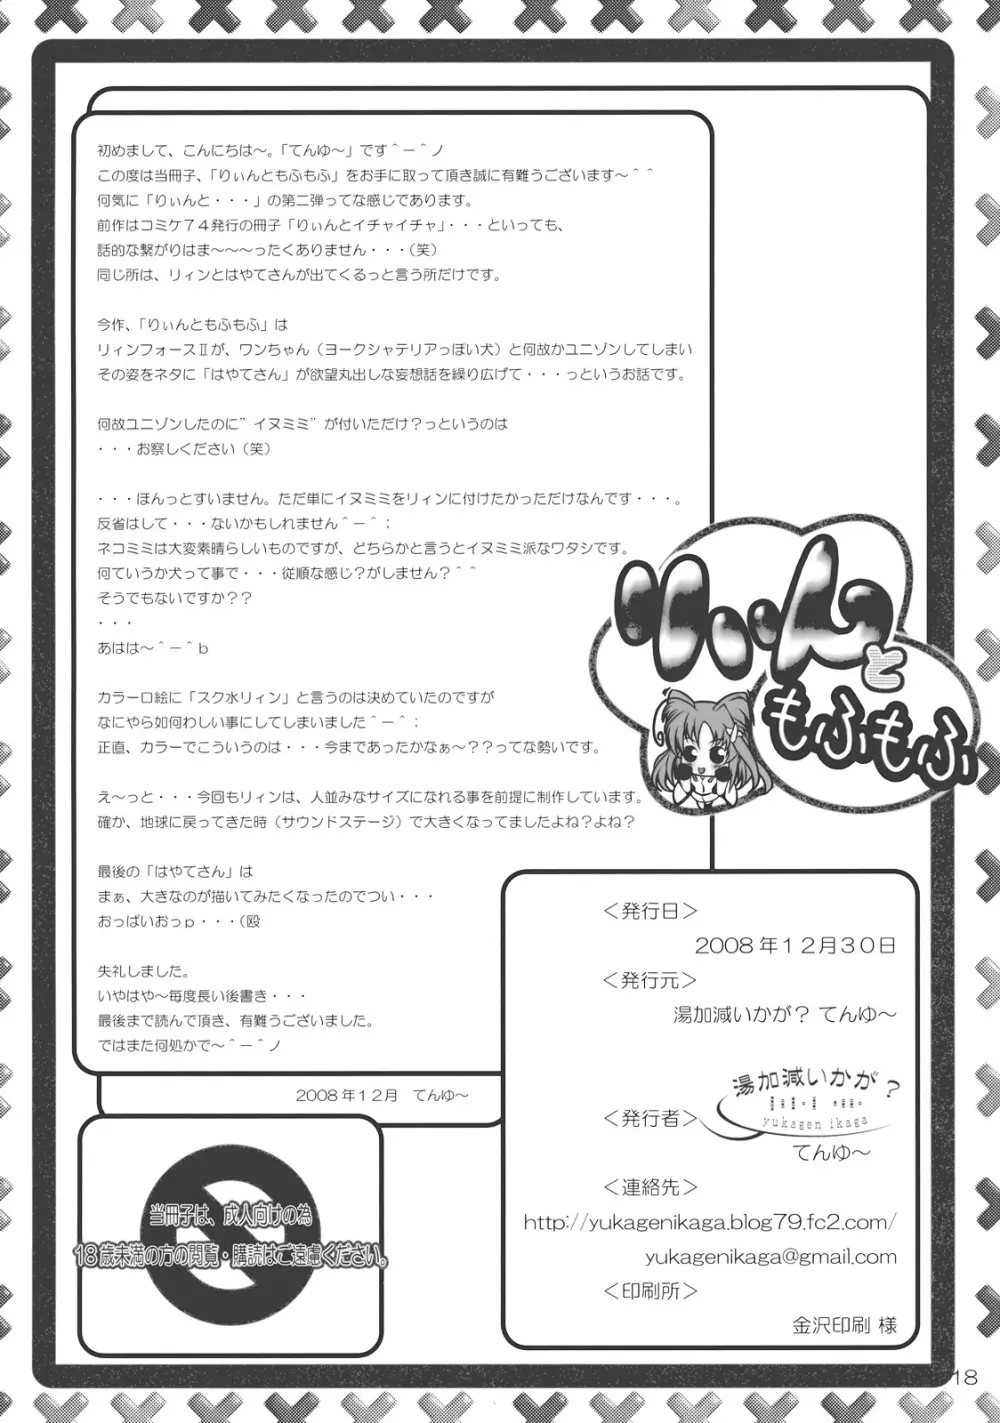 初めまして、こんにちは～。「てんゆ～」です＾－＾ノ
この度は当冊子、「りぃんともふもふ」をお手に取って頂き誠に有難うございます～＾＾
何気に「りぃんと・・・」の第二弾ってな感じであります。
前作はコミケ７４発行の冊子「りぃんとイチャイチャ」・・・といっても、
話的な繋がりはま～～～ったくありません・・・（笑）
同じ所は、リィンとはやてさんが出てくるっと言う所だけです。
今作、「りぃんともふもふ」は
リィンフォースⅡが、ワンちゃん（ヨークシャテリアっぽい犬）と何故かユニゾンしてしまい
その姿をネタに「はやてさん」が欲望丸出しな妄想話を繰り広げて・・・っというお話です。
何故ユニゾンしたのに”イヌミミ”が付いただけ？っというのは
・・・お察しください（笑）
・・・ほんっとすいません。ただ単にイヌミミをリィンに付けたかっただけなんです・・・。
反省はして・・・ないかもしれません＾－＾；
ネコミミは大変素晴らしいものですが、どちらかと言うとイヌミミ派なワタシです。
何ていうか犬って事で・・・従順な感じ？がしません？＾＾
そうでもないですか？？
・・・
あはは～＾－＾ｂ
カラー口絵に「スク水リィン」と言うのは決めていたのですが
なにやら如何わしい事にしてしまいました＾－＾；
正直、カラーでこういうのは・・・今まであったかなぁ～？？ってな勢いです。
え～っと・・・今回もリィンは、人並みなサイズになれる事を前提に制作しています。
確か、地球に戻ってきた時（サウンドステージ）で大きくなってましたよね？よね？
最後の「はやてさん」は
まぁ、大きなのが描いてみたくなったのでつい・・・
おっぱいおっｐ・・・（殴
失礼しました。
いやはや～毎度長い後書き・・・
最後まで読んで頂き、有難うございました。
ではまた何処かで～＾－＾ノ
２００８年１２月　てんゆ～
りぃんと
もふもふ
＜発行日＞
２００８年１２月３０日
＜発行元＞
湯加減いかが？ てんゆ～
湯加減いかが？
yukagen ikaga
＜発行者＞
てんゆ～
＜連絡先＞
http://yukagenikaga.blog79.fc2.com/
yukagenikaga@gmail.com
＜印刷所＞
金沢印刷 様
当冊子は、成人向けの為
18歳未満の方の閲覧・購読はご遠慮ください。
18